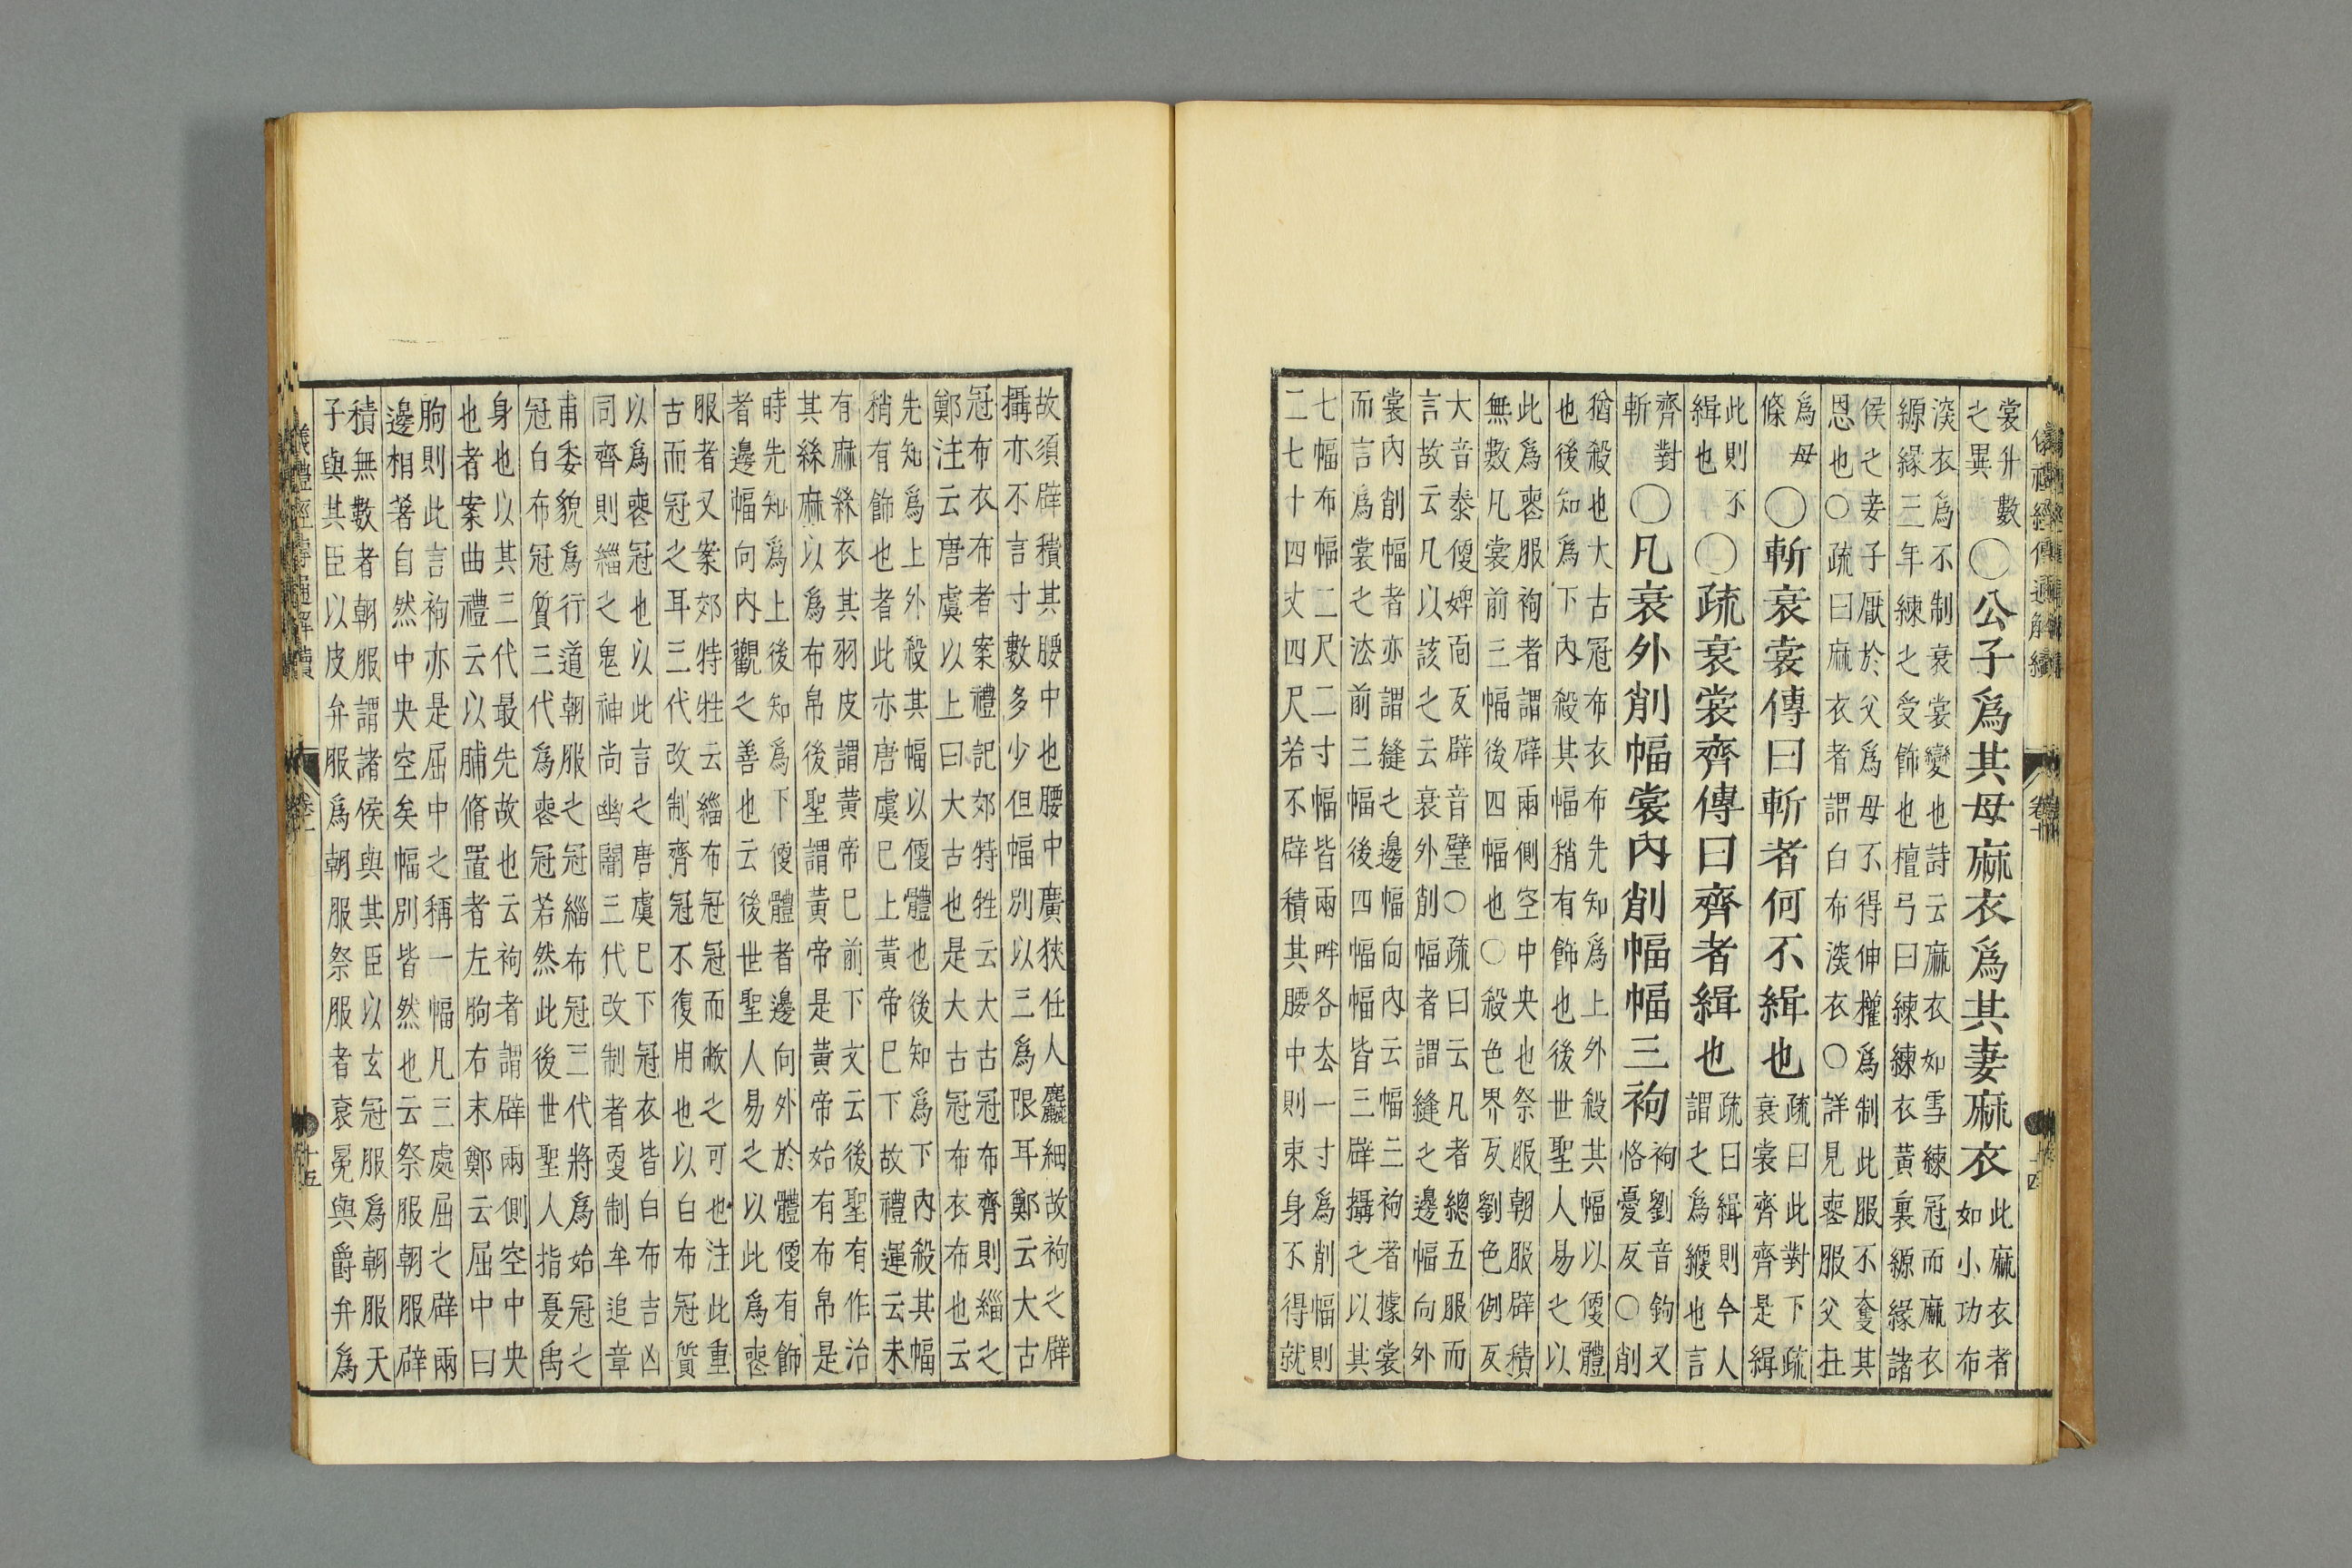 儀禮經傳通解續
裳升數
之異
○公子爲其母麻衣爲其妻麻衣
此麻衣者
如小功布
深衣爲不制衰裳變也詩云麻衣如雪練冠而麻衣
縓緣三年練之受飾也檀弓曰練練衣黃裏縓緣諸
侯之妾子厭於父爲母不得伸權爲制此服不奪其
恩也○疏曰麻衣者謂白布深衣○詳見喪服父在
爲母
條
○斬衰裳傳曰斬者何不緝也
疏曰此對下疏
衰裳齊齊是緝
此則不
緝也
○疏衰裳齊傳曰齊者緝也
疏曰緝則今人
謂之爲緶也言
齊對
斬
○凡衰外削幅裳內削幅幅三袧
袧劉音鉤又
恪憂反○削
猶殺也大古冠布衣布先知爲上外殺其幅以便體
也後知爲下內殺其幅稍有飾也後世聖人易之以
此爲喪服袧者謂辟兩側空中央也祭服朝服辟積
無數凡裳前三幅後四幅也○殺色界反劉色例反
大音泰便婢面反辟音璧○疏曰云凡者總五服而
言故云凡以該之云衰外削幅者謂縫之邊幅向外
裳內削幅者亦謂縫之邊幅向內云幅三袧者據裳
而言爲裳之法前三幅後四幅幅皆三辟攝之以其
七幅布幅二尺二寸幅皆兩畔各去一寸爲削幅則
二七十四丈四尺若不辟積其腰中則束身不得就
故須辟積其腰中也腰中廣狹任人麤細故袧之辟
攝亦不言寸數多少但幅別以三爲限耳鄭云大古
冠布衣布者案禮記郊特牲云大古冠布齊則緇之
鄭注云唐虞以上曰大古也是大古冠布衣布也云
先知爲上外殺其幅以便體也後知爲下內殺其幅
稍有飾也者此亦唐虞巳上黃帝巳下故禮運云未
有麻絲衣其羽皮謂黃帝巳前下文云後聖有作治
其絲麻以爲布帛後聖謂黃帝是黃帝始有布帛是
時先知爲上後知爲下便體者邊向外於體便有飾
者邊幅向內觀之善也云後世聖人易之以此爲喪
服者又案郊特牲云緇布冠冠而敝之可也注此重
古而冠之耳三代改制齊冠不復用也以白布冠質
以爲喪冠也以此言之唐虞巳下冠衣皆白布吉凶
同齊則緇之鬼神尚幽闇三代改制者更制牟追章
甫委貌爲行道朝服之冠緇布冠三代將爲始冠之
冠白布冠質三代爲喪冠若然此後世聖人指夏禹
身也以其三代最先故也云袧者謂辟兩側空中央
也者案曲禮云以脯脩置者左朐右末鄭云屈中曰
朐則此言袧亦是屈中之稱一幅凡三處屈之辟兩
邊相著自然中央空矣幅別皆然也云祭服朝服辟
積無數者朝服謂諸侯與其臣以玄冠服爲朝服天
子與其臣以皮弁服爲朝服祭服者袞冕與爵弁爲
十五